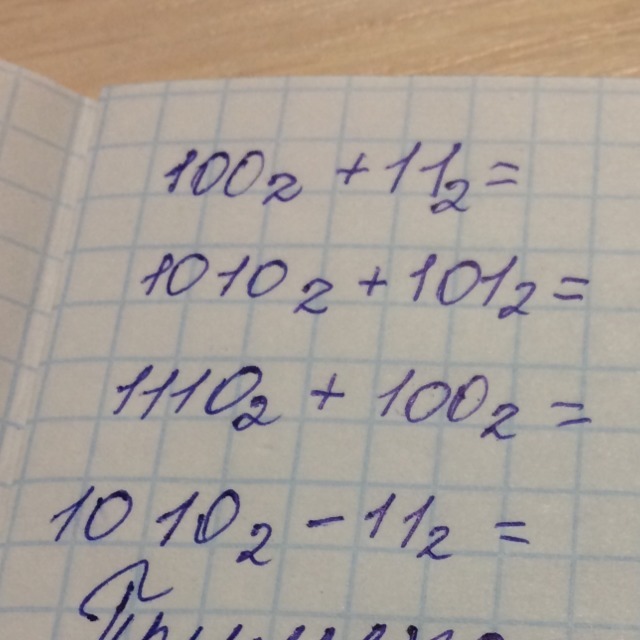 100₂ + 11₂ =
1010₂ + 101₂ =
1110₂ + 100₂ =
1010₂ − 11₂ =